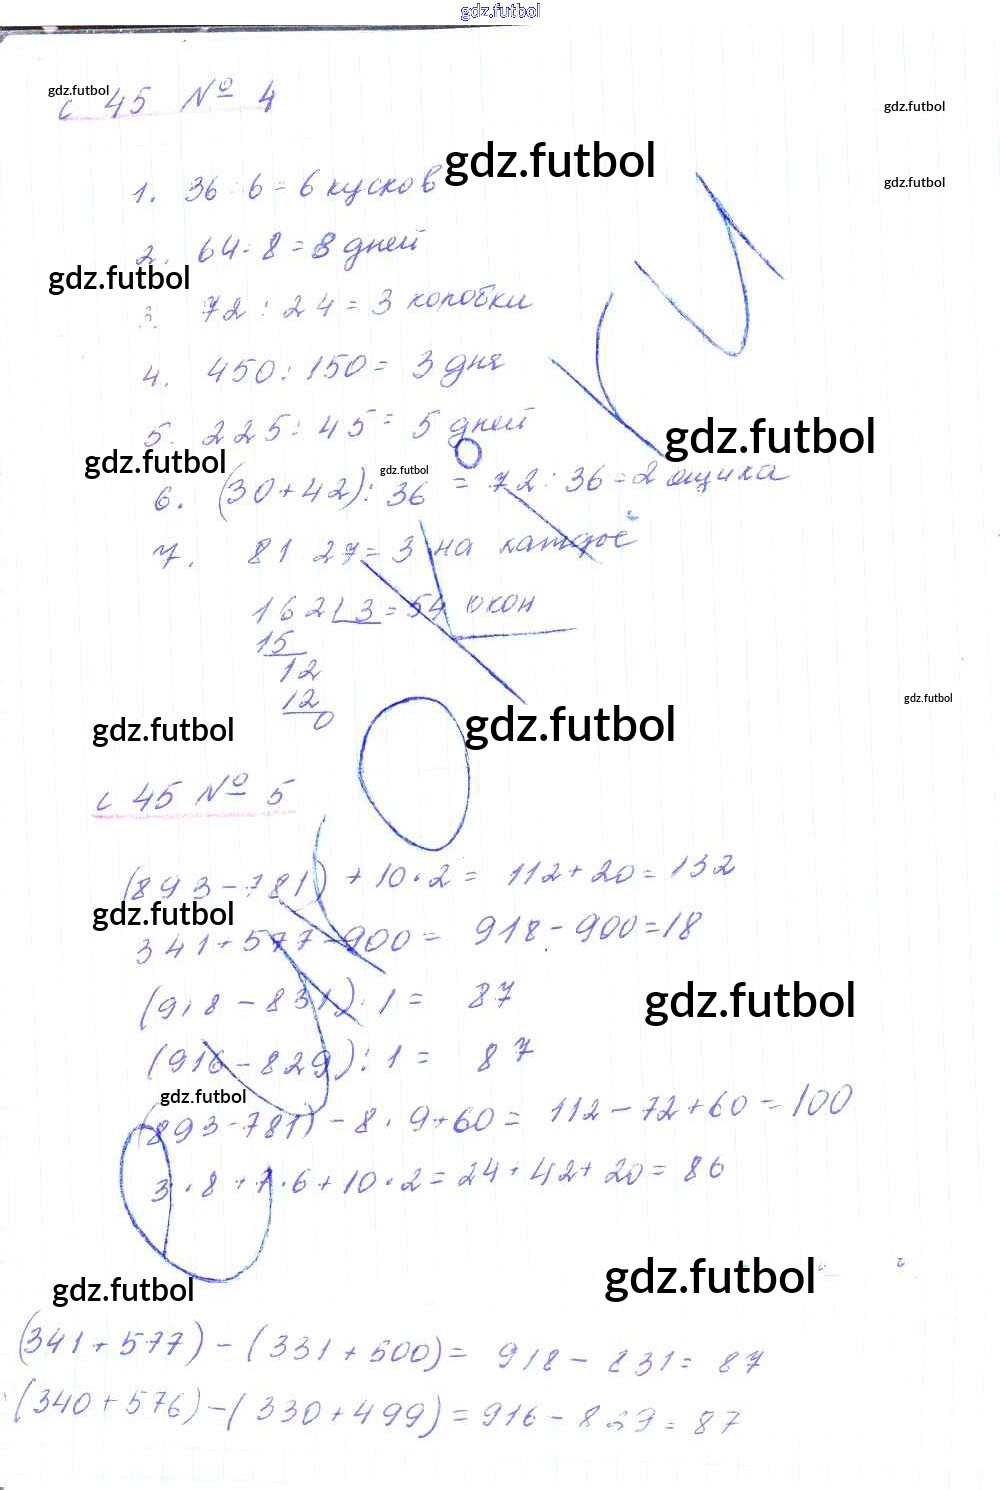 gdz.futbol
gdz.futbol
с 45 № 4
gdz.futbol
gdz.futbol
gdz.futbol
1. 36 : 6 = 6 кусков
2. 64 : 8 = 8 дней
gdz.futbol
3. 72 : 24 = 3 коробки
4. 450 : 150 = 3 дня
5. 225 : 45 = 5 дней
gdz.futbol
gdz.futbol
gdz.futbol
6. (30+42) : 36 = 72 : 36 = 2 ящика
7. 81 27 = 3 на каждое
162 3 = 54 окон
15
12
12
0
gdz.futbol
gdz.futbol
gdz.futbol
с 45 № 5
(893 - 781) + 10 · 2 = 112 + 20 = 132
gdz.futbol
341 + 577 - 900 = 918 - 900 = 18
(918 - 831) : 1 = 87
gdz.futbol
(916 - 829) : 1 = 87
gdz.futbol
(893 - 781) - 8 · 9 + 60 = 112 - 72 + 60 = 100
3 · 8 + 7 · 6 + 10 · 2 = 24 + 42 + 20 = 86
gdz.futbol
gdz.futbol
(341 + 577) - (331 + 500) = 918 - 831 = 87
(340 + 576) - (330 + 499) = 916 - 829 = 87